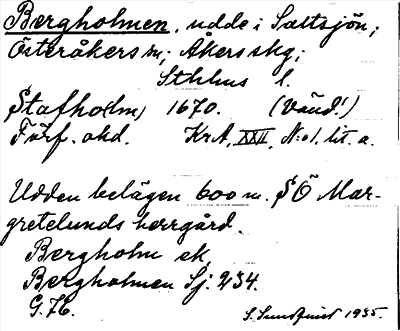 Bergholmen, udde i Saltsjön;
Österåkers sn; Åkers skg;
Sthlms l.
Stafho(lm) 1670. (Vänd!)
Förf. okd. KrA, XXII, N:o 1. lit. a.
Udden belägen 600 m. SÖ Mar-
gretelunds herrgård.
Bergholm ek
Bergholmen Sj: 234.
G. 76.
S. Sundquist 1935.